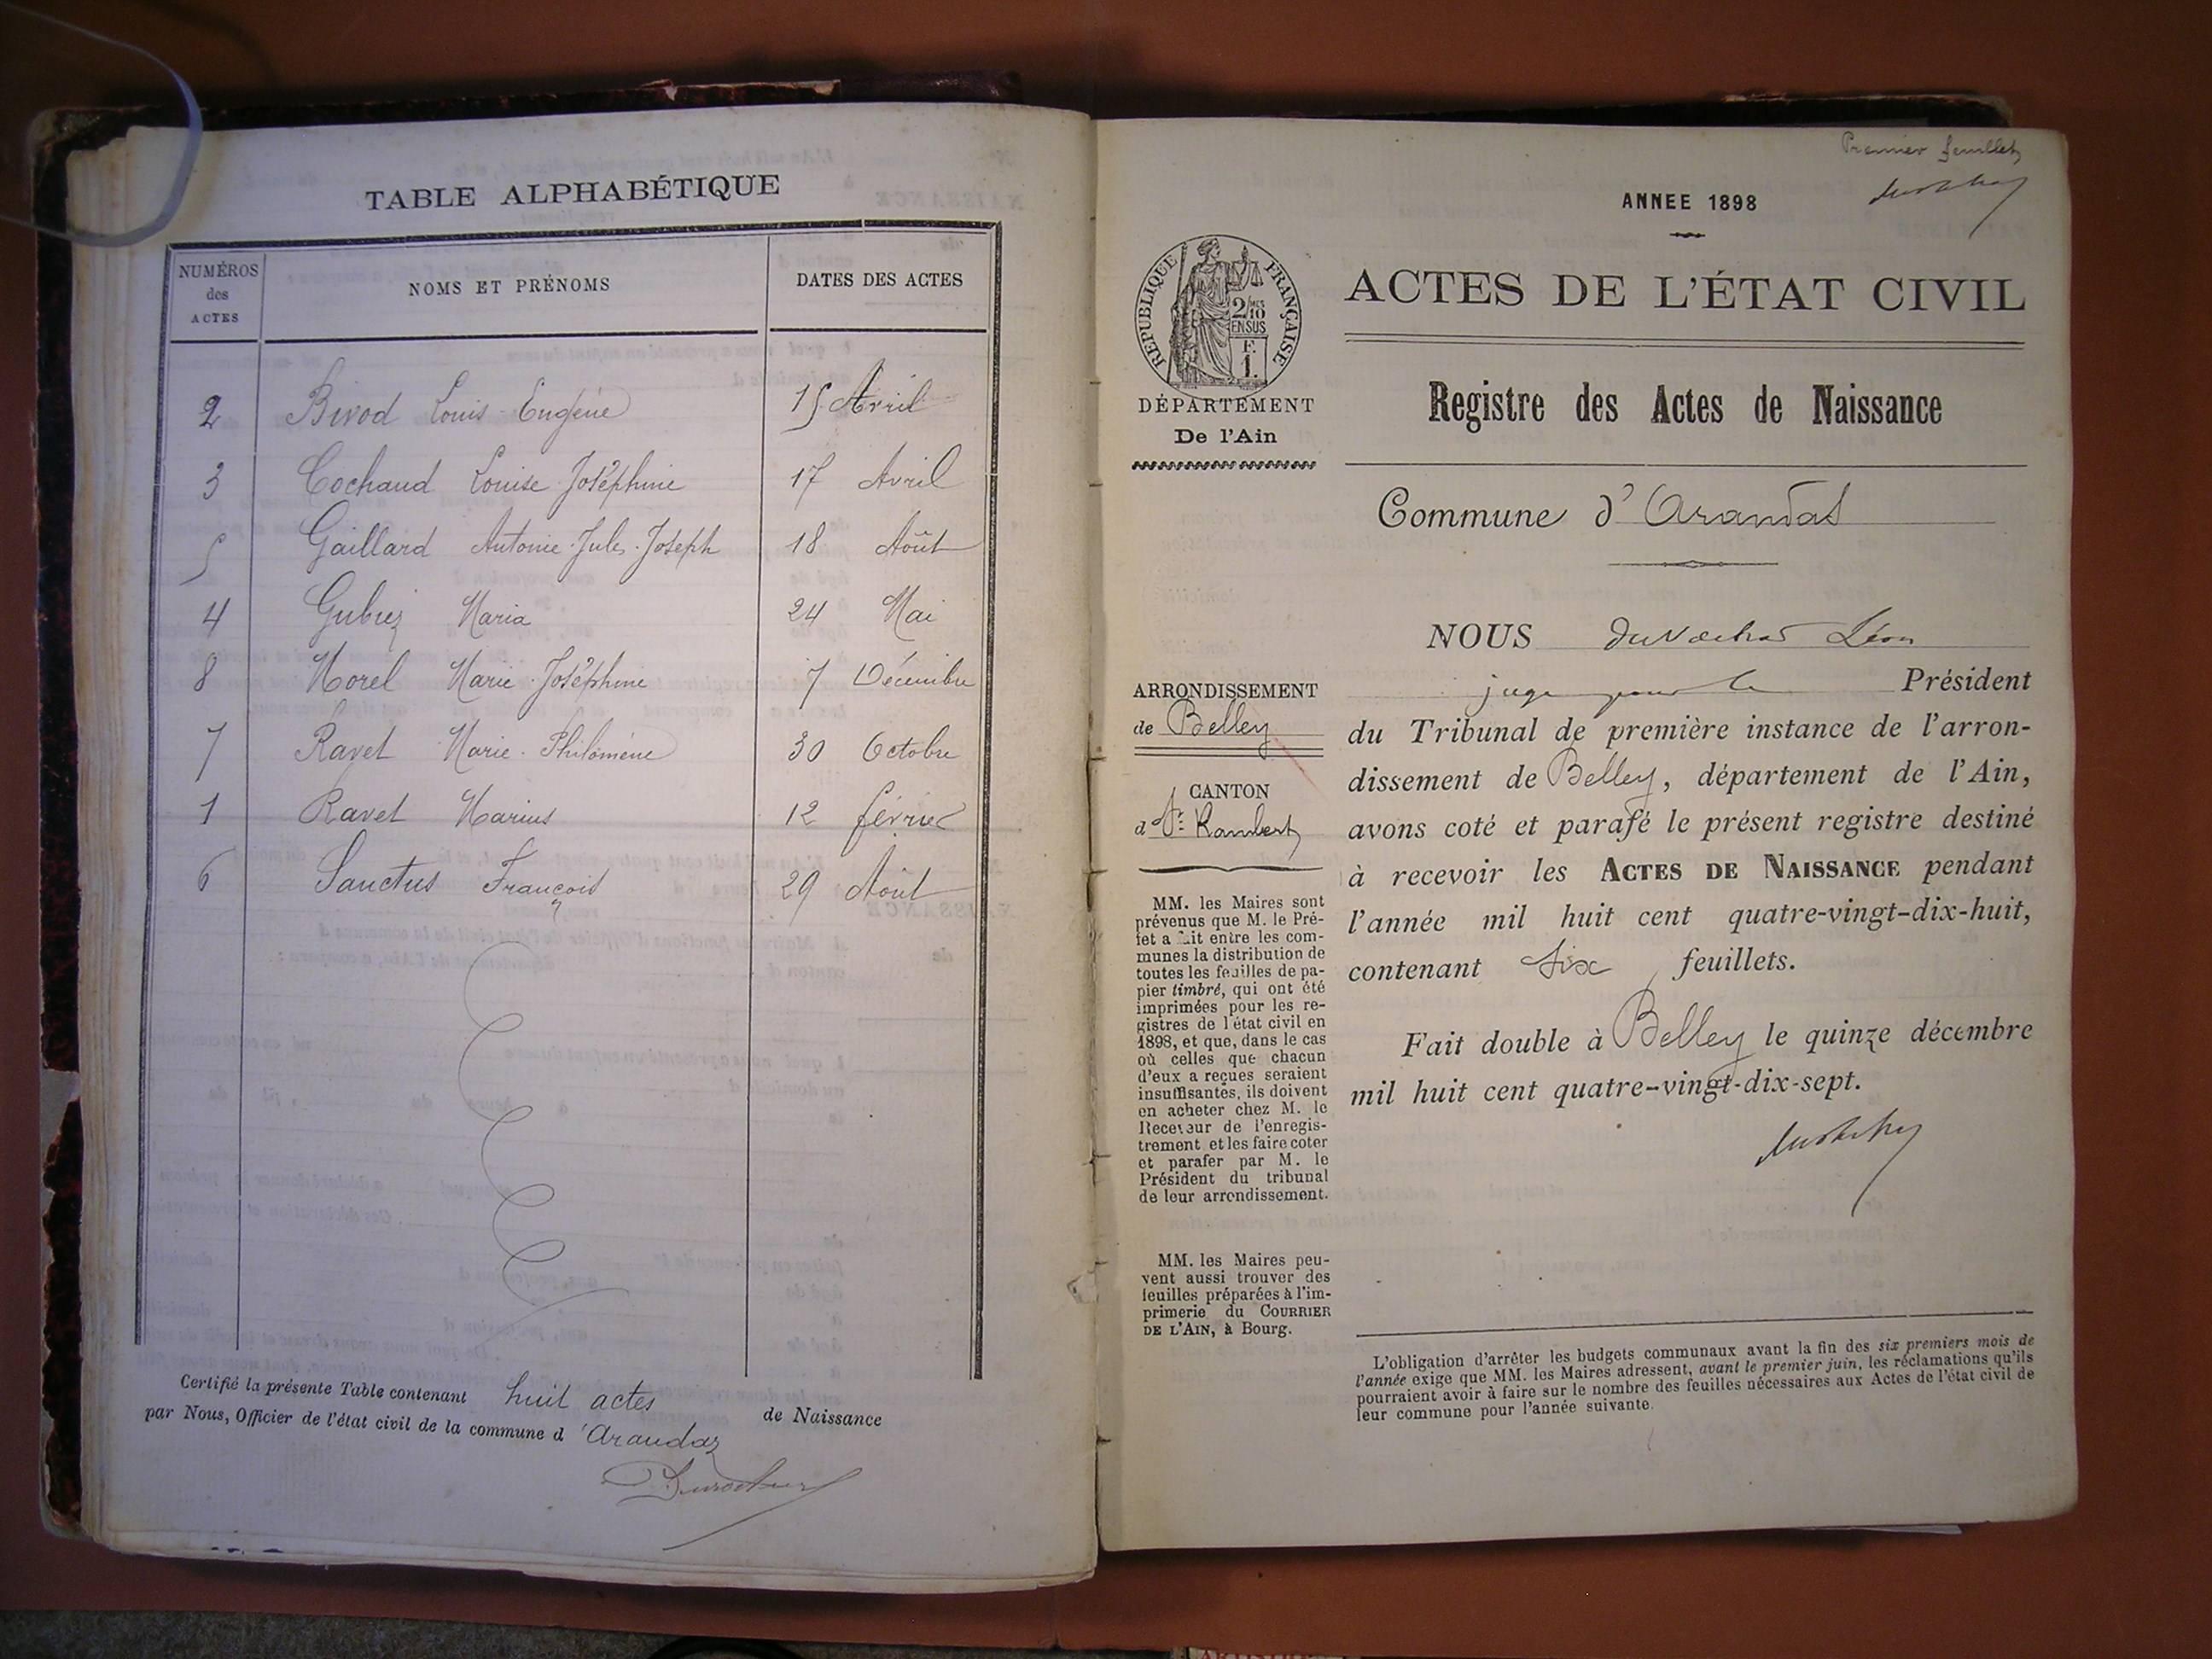 TABLE ALPHABÉTIQUE
NUMÉROS des ACTES
NOMS ET PRÉNOMS
DATES DES ACTES
2 Birod Louis Eugène 15 Avril
3 Cochaud Louise Joséphine 17 Avril
5 Gaillard Antonie Jules Joseph 18 Août
4 Maria 24 Mai
8 Morel Marie Joséphine 7 Décembre
7 Ravet Marie Philomène 30 Octobre
1 Ravet Marius 12 février
6 Sanctus François 29 Août
Certifié la présente Table contenant huit actes de Naissance
par Nous, Officier de l'état civil de la commune d 'Arandaz
Premier feuillet
ANNEE 1898
ACTES DE L'ÉTAT CIVIL
Registre des Actes de Naissance
Commune d'Arandas
RÉPUBLIQUE FRANÇAISE
2/10 MES
EN SUS
F.
1.
DÉPARTEMENT
De l'Ain
ARRONDISSEMENT
de Belley
CANTON
d St Rambert
MM. les Maires sont
prévenus que M. le Pré-
fet a fait entre les com-
munes la distribution de
toutes les feuilles de pa-
pier timbré, qui ont été
imprimées pour les re-
gistres de l'état civil en
1898, et que, dans le cas
où celles que chacun
d'eux a reçues seraient
insuffisantes, ils doivent
en acheter chez M. le
Receveur de l'enregis-
trement et les faire coter
et parafer par M. le
Président du tribunal
de leur arrondissement.
MM. les Maires peu-
vent aussi trouver des
feuilles préparées à l'im-
primerie du COURRIER
DE L'AIN, à Bourg.
NOUS Léon
juge pour le Président
du Tribunal de première instance de l'arron-
dissement de Belley, département de l'Ain,
avons coté et parafé le présent registre destiné
à recevoir les ACTES DE NAISSANCE pendant
l'année mil huit cent quatre-vingt-dix-huit,
contenant six feuillets.
Fait double à Belley le quinze décembre
mil huit cent quatre-vingt-dix-sept.
L'obligation d'arrêter les budgets communaux avant la fin des six premiers mois de
l'année exige que MM. les Maires adressent, avant le premier juin, les réclamations qu'ils
pourraient avoir à faire sur le nombre des feuilles nécessaires aux Actes de l'état civil de
leur commune pour l'année suivante.